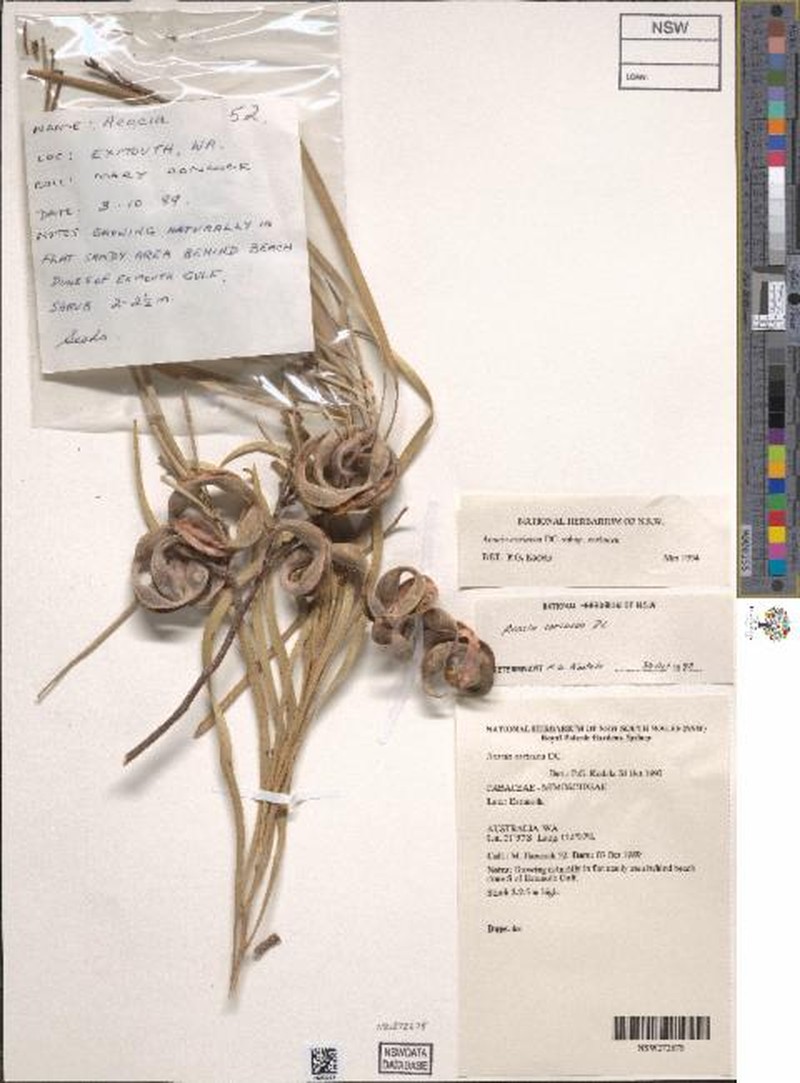 NSW
LOAN:
NAME: Acacia 52.
LOC: EXMOUTH, WA.
COLL: MARY
DATE: 3.10 89.
NOTES GROWING NATURALLY IN
FLAT SANDY AREA BEHIND BEACH
DUNES OF EXMOUTH GULF.
SHRUB 2-2½ m.
Seeds
NATIONAL HERBARIUM OF N.S.W.
Acacia coriacea DC. subsp. coriacea
DET. P.G. Kodela 1994
NATIONAL HERBARIUM OF N.S.W.
Acacia coriacea DC
DETERMINAVIT P.G. Kodela
NATIONAL HERBARIUM OF NEW SOUTH WALES (NSW)
Royal Botanic Gardens Sydney
Acacia coriacea DC.
Det.: P.G. Kodela
FABACEAE - MIMOSOIDEAE
Loc.: Exmouth.
AUSTRALIA: WA
Coll.: M. 52 Date: 03 Oct 1989
Notes: Growing naturally in flat sandy area behind beach
dunes of Exmouth Gulf.
Shrub 2-2.5 m high.
NSW272678
NSW DATA
DATABASE
NSW272678